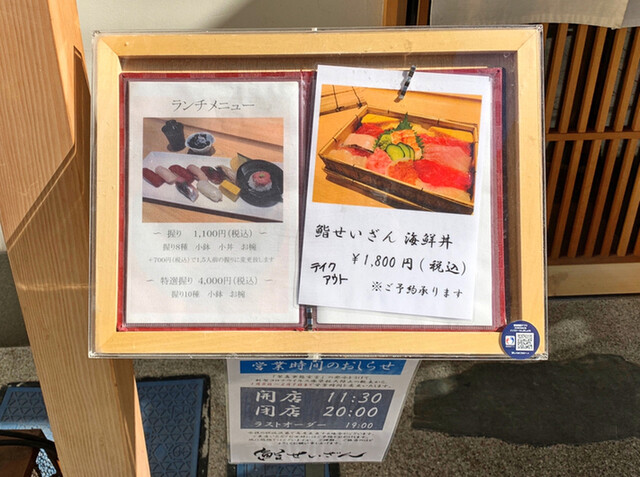 ランチメニュー
～ 握り 1,100円(税込) ～
握り8種 小鉢 小丼 お椀
+700円(税込)で1.5人前の握りに変更致します
～ 特選握り 4,000円(税込) ～
握り10種 小鉢 お椀
鮨せいざん 海鮮丼
¥1,800円(税込)
テイク
アウト
※ご予約承ります
営業時間のおしらせ
開店 11:30
閉店 20:00
ラストオーダー 19:00
鮨せいざん